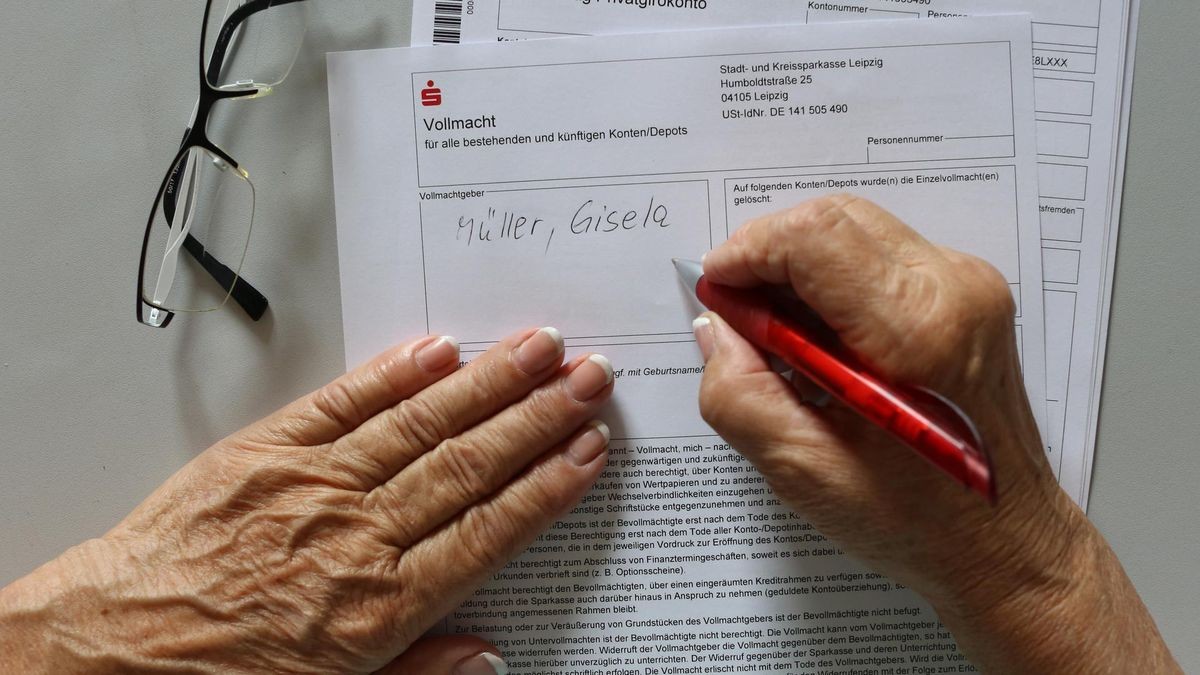 Privatgirokonto
Kontonummer
Stadt- und Kreissparkasse Leipzig
Humboldtstraße 25
04105 Leipzig
USt-IdNr. DE 141 505 490
Vollmacht
für alle bestehenden und künftigen Konten/Depots
Personennummer
Vollmachtgeber
Auf folgenden Konten/Depots wurde(n) die Einzelvollmacht(en)
gelöscht:
Müller, Gisela
mit Geburtsname/
– Vollmacht, mich –
der gegenwärtigen und zukünftige
auch berechtigt, über Konten
von Wertpapieren und zu
Wechselverbindlichkeiten einzugehen
Schriftstücke entgegenzunehmen und
ist der Bevollmächtigte erst nach dem Tode des
diese Berechtigung erst nach dem Tode aller
die in dem jeweiligen Vordruck zur Eröffnung des
berechtigt zum Abschluss von Finanztermingeschäften, soweit es sich dabei
Urkunden verbrieft sind (z. B. Optionsscheine).
berechtigt den Bevollmächtigten, über einen eingeräumten Kreditrahmen zu verfügen
durch die Sparkasse auch darüber hinaus in Anspruch zu nehmen (geduldete Kontoüberziehung),
angemessenen Rahmen bleibt.
Zur Belastung oder zur Veräußerung von Grundstücken des Vollmachtgebers ist der Bevollmächtigte nicht befugt.
von Untervollmachten ist der Bevollmächtigte nicht berechtigt. Die Vollmacht kann vom Vollmachtgeber
widerrufen werden. Widerruft der Vollmachtgeber die Vollmacht gegenüber dem Bevollmächtigten, so hat
hierüber unverzüglich zu unterrichten. Der Widerruf gegenüber der Sparkasse und deren Unterrichtung
schriftlich erfolgen. Die Vollmacht erlischt nicht mit dem Tode des Vollmachtgebers. Wird die